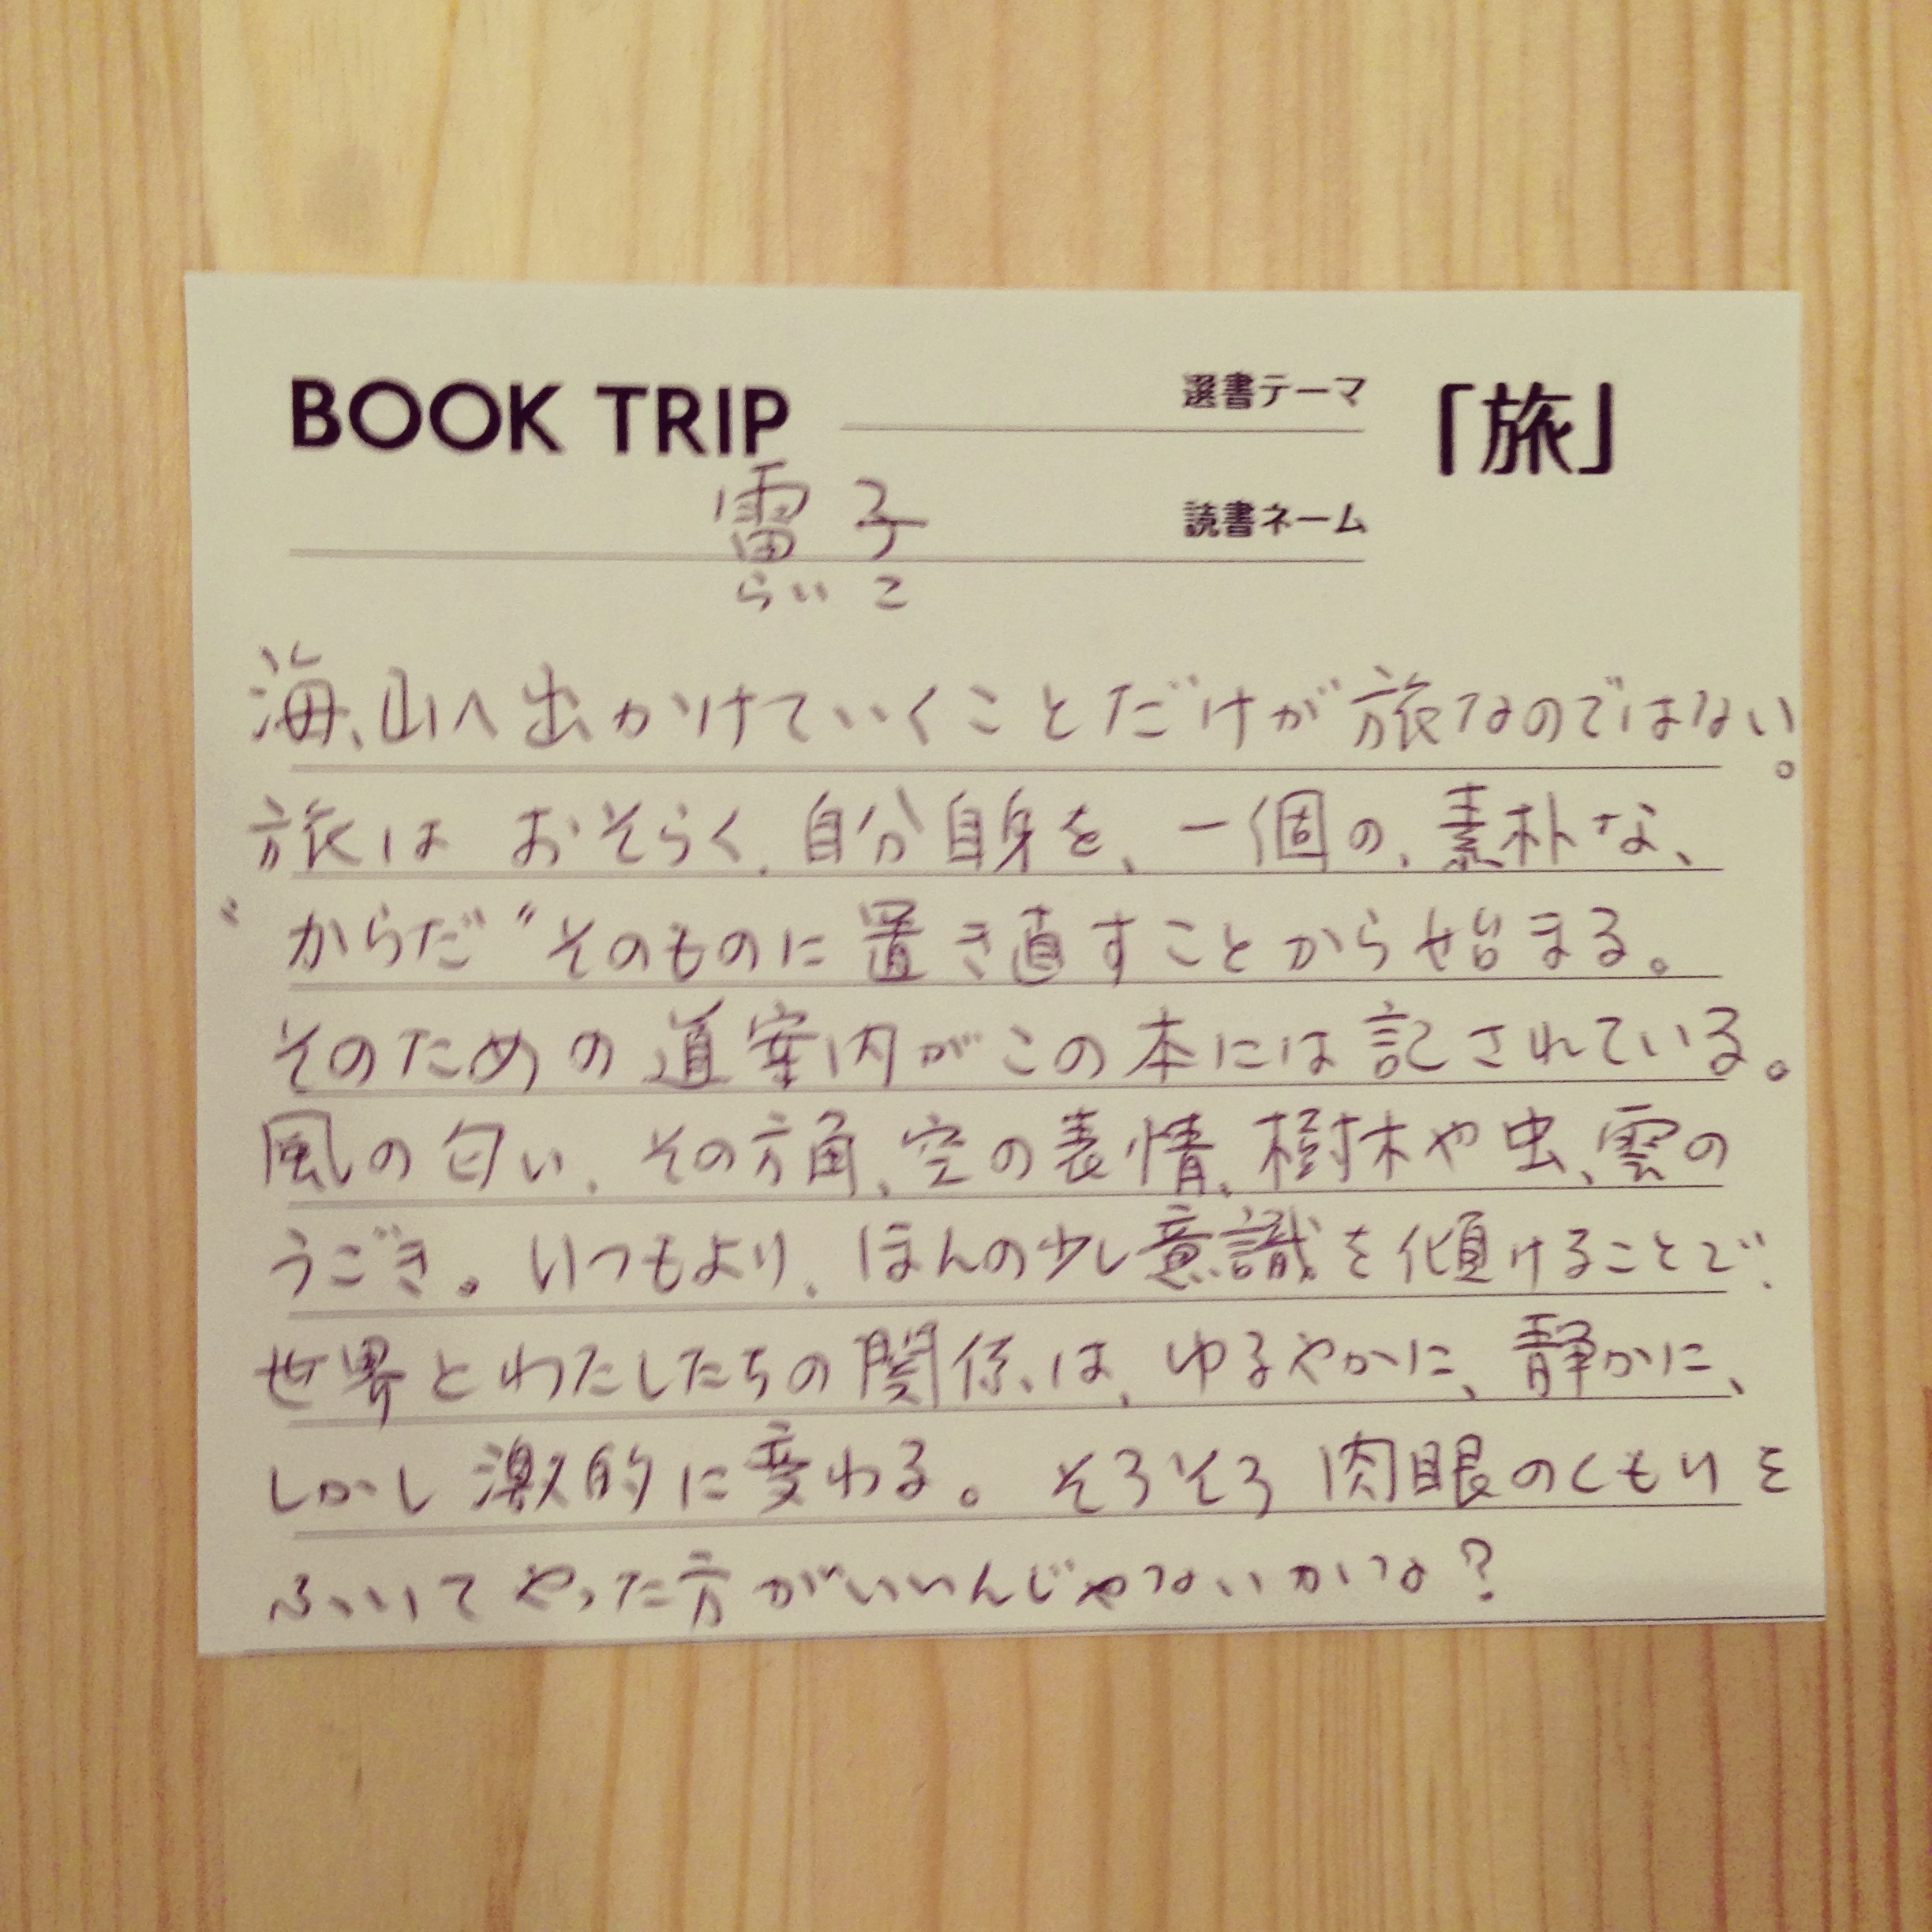 BOOK TRIP
選書テーマ
「旅」
雷子
読書ネーム
らいこ
海、山へ出かけていくことだけが旅なのではない。
旅は おそらく、自分自身を、一個の、素朴な、
“からだ”そのものに置き直すことから始まる。
そのための道案内がこの本には記されている。
風の匂い、その方角、空の表情、樹木や虫、雲の
うごき。いつもより、ほんの少し意識を傾けることで、
世界とわたしたちの関係は、ゆるやかに、静かに、
しかし激的に変わる。そろそろ肉眼のくもりを
ふいてやった方がいいんじゃないかな?